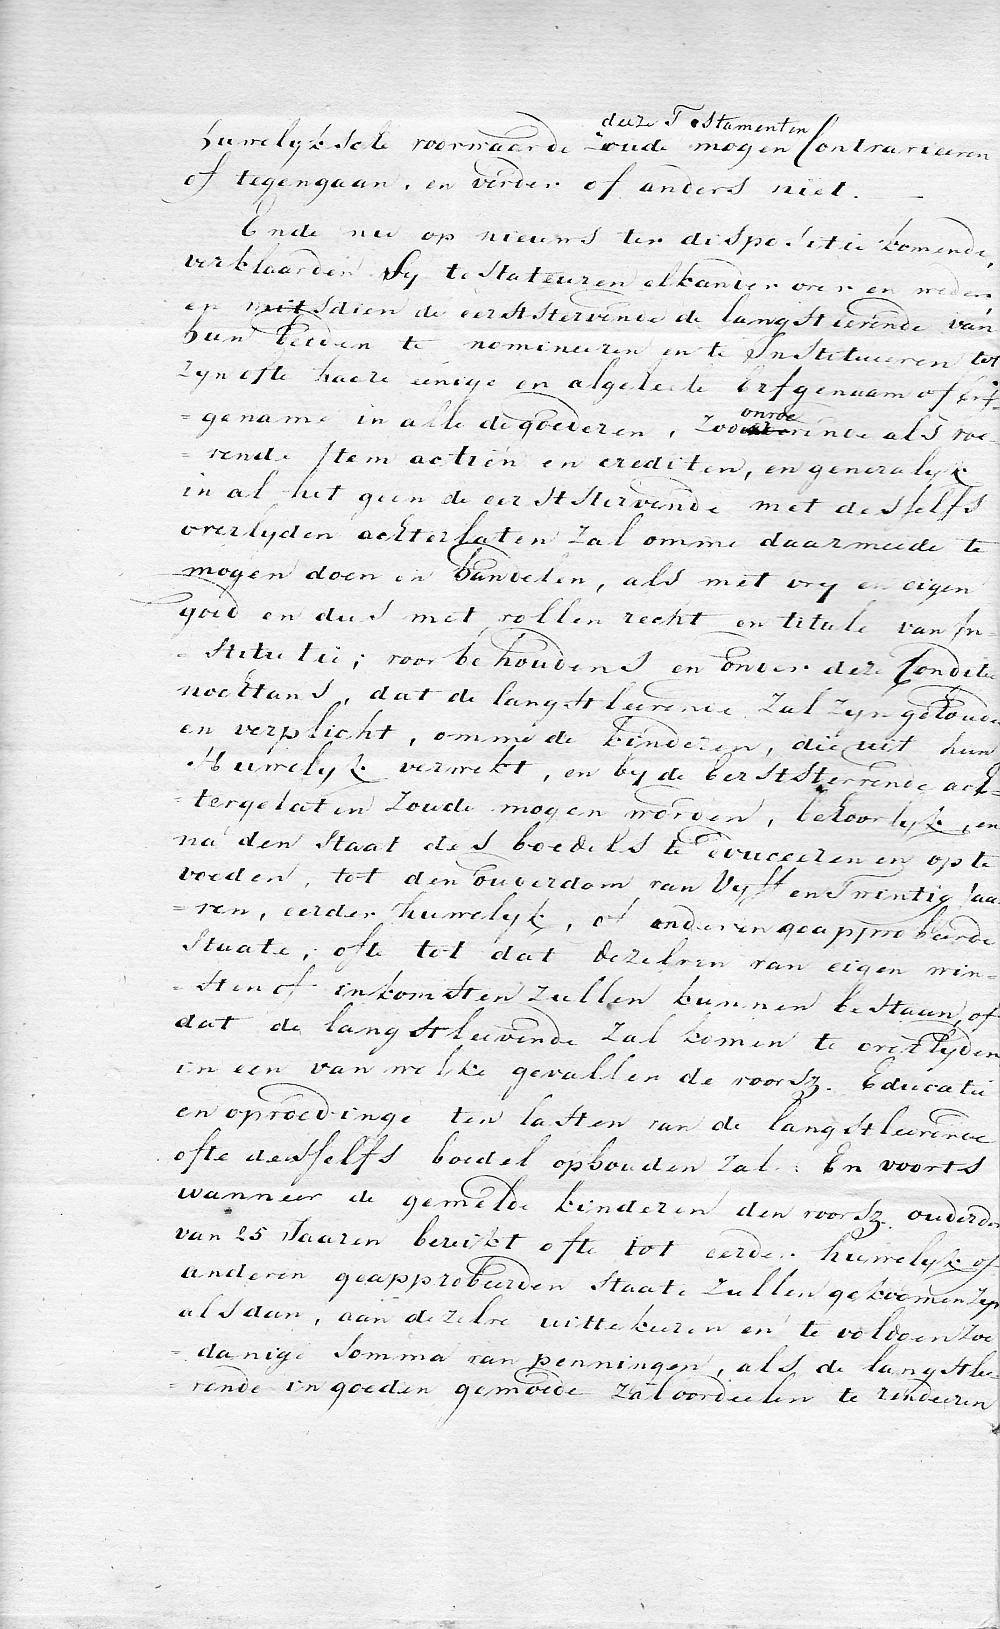 deeze Testamenten
huwelykscle voorwaarde zoude mogen Contrarieeren
of tegengaan, en verder of anders niet.
Ende nu op nieuws ter dispositie komende,
verklaarden Sy testateuren elkander over en weder
en mitsdien de eerststervende de langstleevende van
hun beiden te nomineeren en te Institueeren tot
zyn ofte haere eenige en algeheele Erfgenaam of Erf=
=gename in alle de goederen, zoo onroerende als roe=
=rende, Item actien en crediten, en generalyk
in al het geen de eerststervende met desselfs
overlyden achterlaten zal omme daarmeede te
mogen doen en handelen, als met vry en eigen
goed en dus met vollen recht en titule van In=
=stitutie; voorbehoudens en onder deze Conditie
nochtans, dat de langstleevende zal zyn gehouden
en verplicht, omme de kinderen, die uit hun
Huwelyk verwekt, en by de Eerststervende ach=
=tergelaten zoude mogen worden, behoorlyk, en
na den Staat des boedels te Educeeren en op te
voeden, tot den ouderdom van Vyff en Twintig Jaa
=ren, eerder huwelyk, of anderen geapprobeerde
Staate, ofte tot dat dezelven van eigen win=
=sten of inkomsten zullen kunnen bestaan, of
dat de langstleevende zal komen te overlyden
in een van welke gevallen de voorsz. Educatie
en opvoedinge ten lasten van de langstleevende
ofte desselfs boedel ophouden zal. En voorts
wanneer de gemelde kinderen den voorsz. ouderdom
van 25 Jaaren bereikt ofte tot eerder huwelyk of
anderen geapprobeerden Staate zullen gekoomen zyn
alsdan, aan dezelve uittekeeren en te voldoen zoo
=danige Somma van penningen, als de langstlee=
=vende in goeden gemoede zal oordeelen te rendeeren